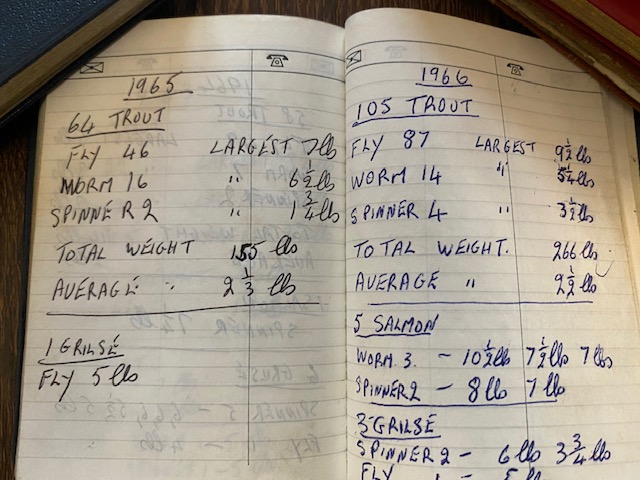 1965
64 TROUT
FLY 46 LARGEST 7 lb
WORM 16 " 6 1/2 lb
SPINNER 2 " 1 3/4 lb
TOTAL WEIGHT 155 lbs
AVERAGE " 2 1/3 lb
1 GRILSE
FLY 5 lb
1966
105 TROUT
FLY 87 LARGEST 9 1/2 lb
WORM 14 " 5 1/4 lb
SPINNER 4 " 3 1/2 lb
TOTAL WEIGHT. 266 lb
AVERAGE " 2 1/2 lb
5 SALMON
WORM 3. - 10 1/2 lb 7 1/2 lb 7 lbs
SPINNER 2 - 8 lb 7 lb
3 GRILSE
SPINNER 2 - 6 lb 3 3/4 lb
FLY